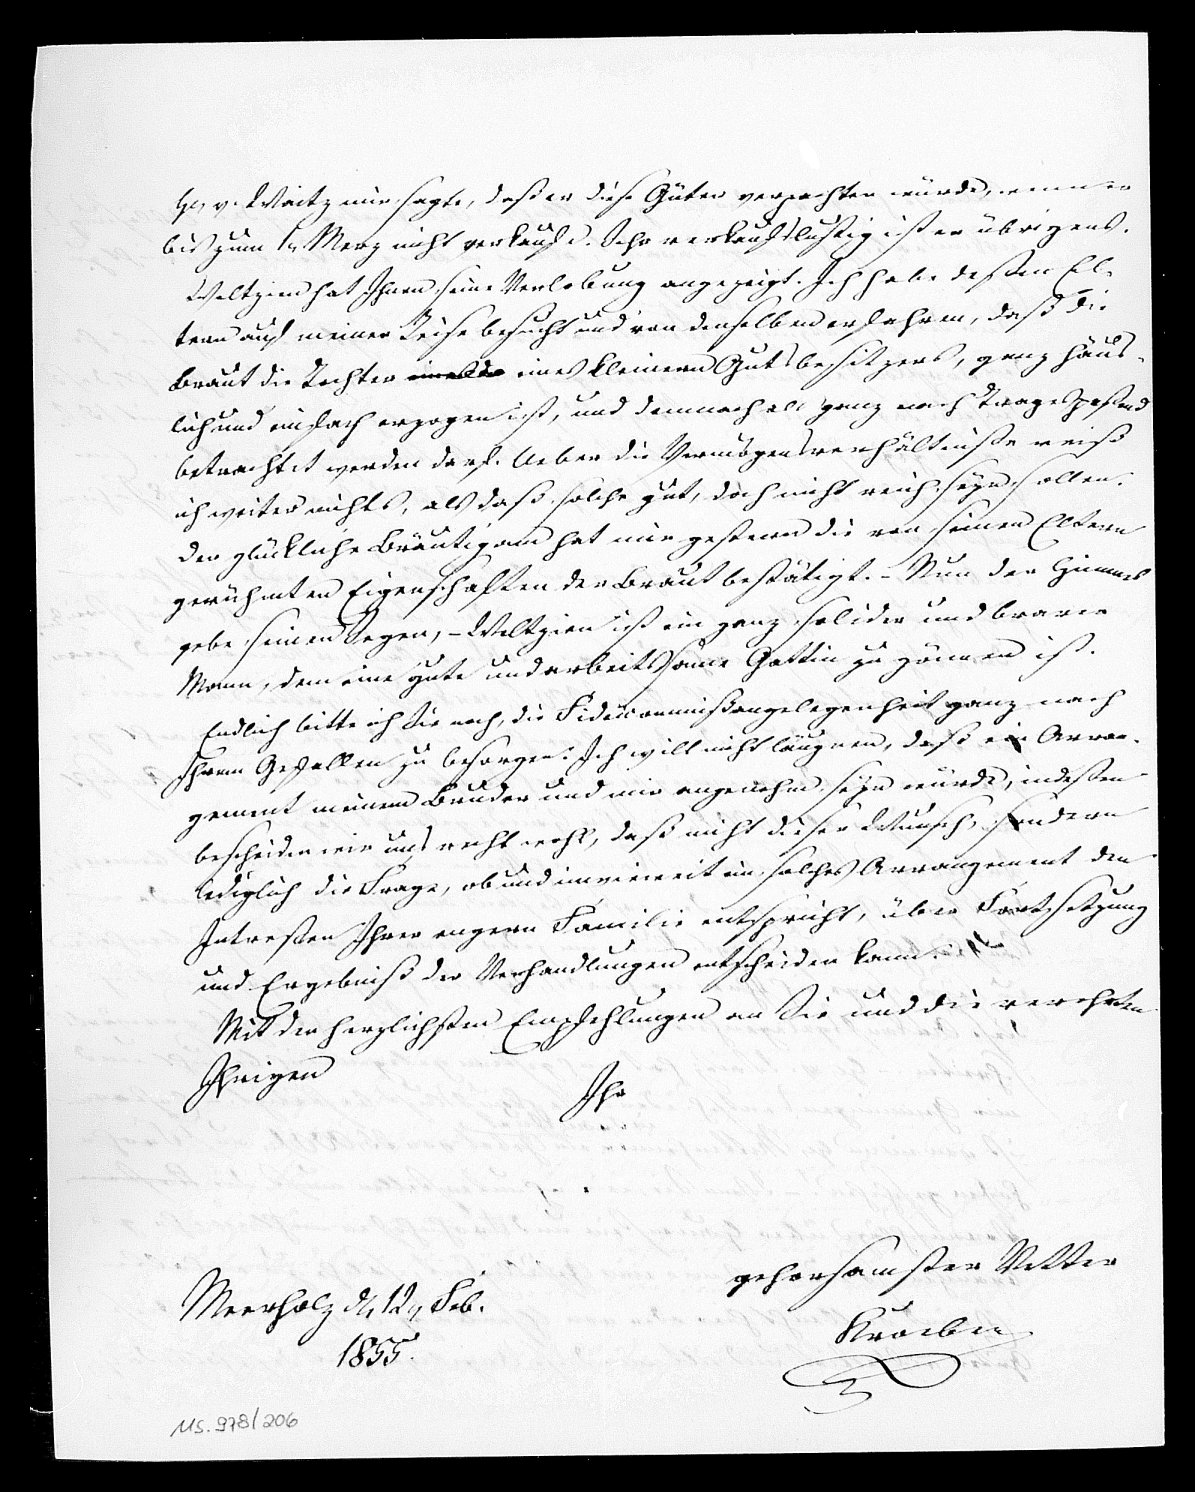 H. v. Waitz mir sagte, daß er diese Güter verpachten würde, wenn er
bis zum 1n Merz nicht verkauft. Sehr verkaufslustig ist er übrigens.
Weltzien hat Ihnen seine Verlobung angezeigt. Ich habe deßen El-
tern auf meiner Reise besucht und von denselben erfahren, daß die
Braut die Tochter eines kleinern Gutsbesitzers, ganz häus-
lich und einfach erzogen ist, und demnach als ganz nach paßend
betrachtet werden darf. Ueber die Vermögensverhältniße weiß
ich weiter nichts, als daß solche gut, doch nicht reich seyn sollen.
Der glückliche Bräutigam hat mir gestern die von seinen Eltern
gerühmten Eigenschaften der Braut bestätigt. – Nun der Himmel
gebe seinen Segen, – Weltzien ist ein ganz solider und braver
Mann, dem eine gute und arbeitsame Gattin zu gönnen ist.
Endlich bitte ich Sie noch, die Fideicommißangelegenheit ganz nach
Ihrem Gefallen zu besorgen. Ich will nicht läugnen, daß ein Arran-
gement meinem Bruder und mir angenehm seyn würde, indeßen
bescheiden wir uns recht wohl, daß nicht dieser Wunsch, sondern
lediglich die Frage, ob und inwieweit ein solches Arrangement den
Intreßen Ihrer engern Familie entspricht, über Fortsetzung
und Ergebniß der Verhandlungen entscheiden kann.
Mit den herzlichsten Empfehlungen an Sie und die verehrten
Ihrigen
Ihr
gehorsamster Vetter
Meerholz d. 12n Feb.
1855.
MS. 978/206